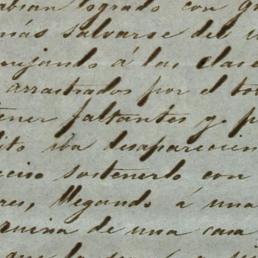 abian logrado con g
más salvarse del
rujando á las clase
arrastrados por el to
tener faltantes y p
ito iva desaparecien
eciso sostenerlo con
res, llegando á una
ruina de una casa
que